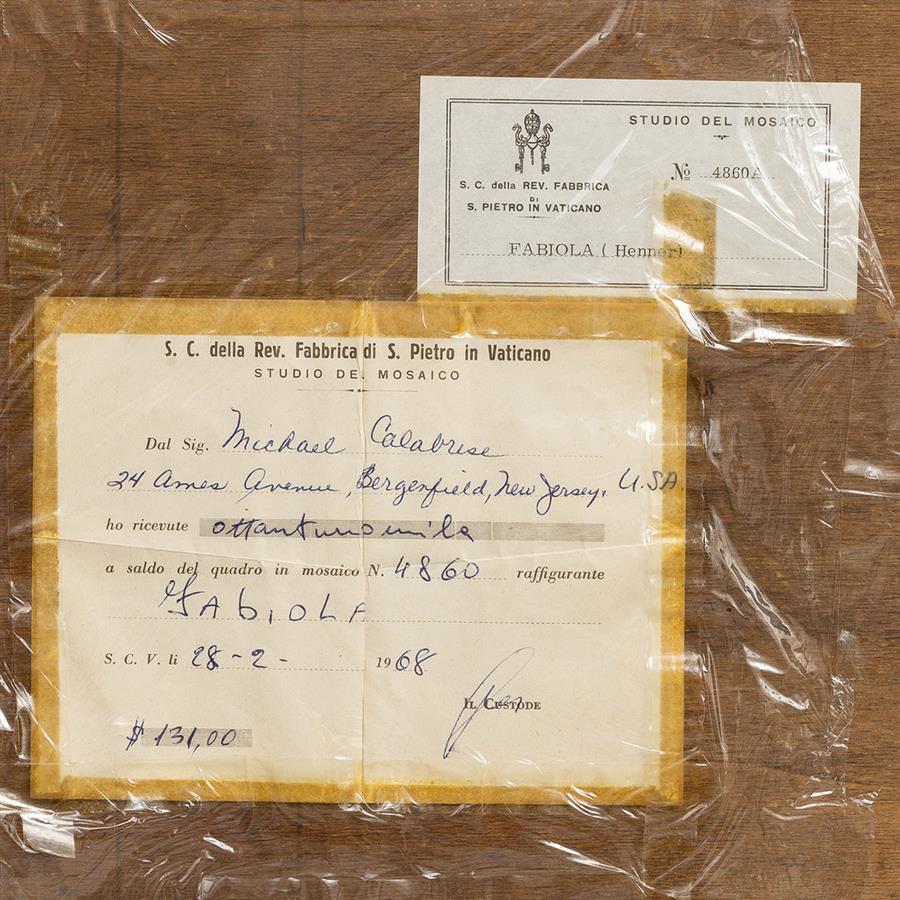 STUDIO DEL MOSAICO
No 4860A
S. C. della REV. FABBRICA
DI
S. PIETRO IN VATICANO
FABIOLA ( Henner)
S. C. della Rev. Fabbrica di S. Pietro in Vaticano
STUDIO DEL MOSAICO
Dal Sig. Michael Calabrese
24 Ames Avenue, Bergenfield, New Jersey, U.S.A.
ho ricevute ottantunomila
a saldo del quadro in mosaico N. 4860 raffigurante
FABIOLA
S. C. V. li 28-2- 1968
IL CUSTODE
$ 131,00